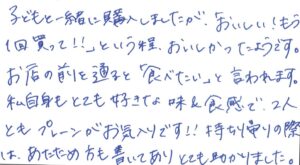 子どもと一緒に購入しましたが、「おいしい！もう
1回買って!!」という程、おいしかったようです。
お店の前を通ると「食べたい」と言われます。
私自身もとても好きな味&食感で、2人
ともプレーンがお気入りです!! 持ち帰りの際
は、あたため方も書いてありとても助かりました。